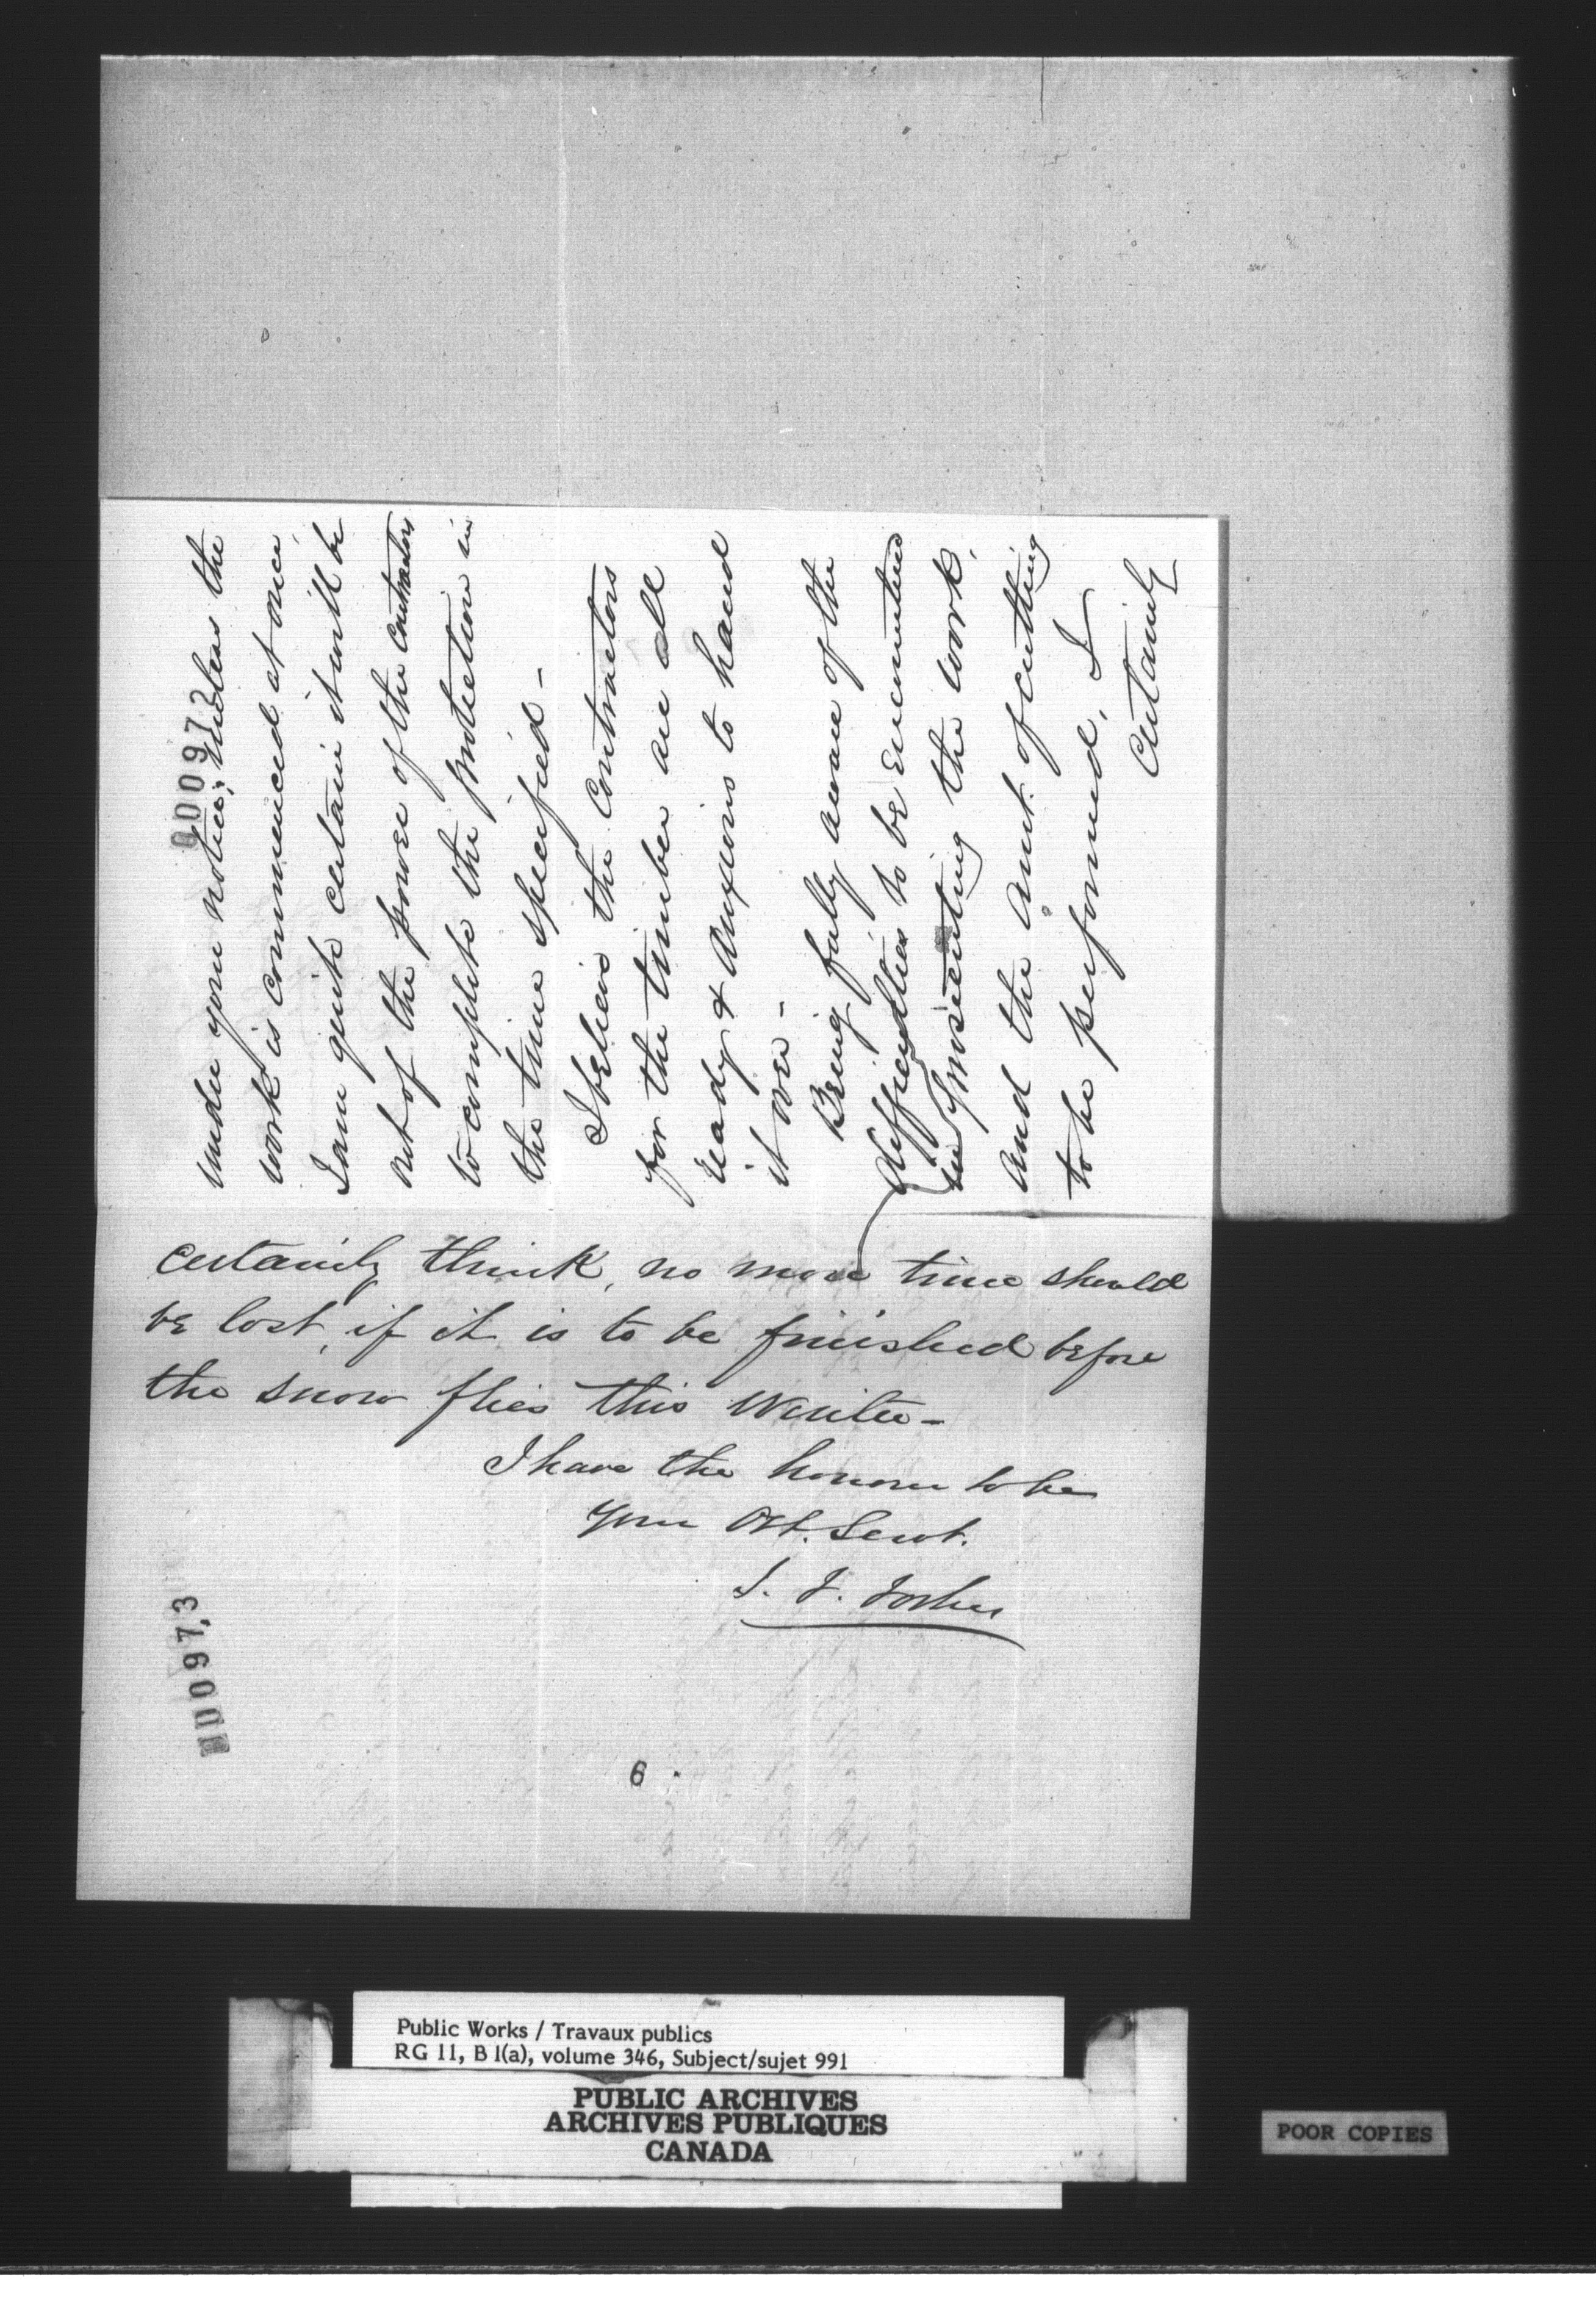 000972
under your notice; Unless the
work is commenced at once,
I am quite certain it will be
out of the power of the Contractors
to complete the protection in
the time specified -
I believe the Contractors
for the timber are all
ready & anxious to hand
it over -
Being fully aware of the
difficulties to be encountered
in prosecuting the work,
and the amt. of cutting
to be performed, I
Certainly
certainly think, no more time should
be lost, if it is to be finished before
the snow flies this Winter -
I have the honour to be
Your Obt. Servt.
000973
6
Public Works / Travaux publics
RG 11, B 1(a), volume 346, Subject/sujet 991
PUBLIC ARCHIVES
ARCHIVES PUBLIQUES
CANADA
POOR COPIES